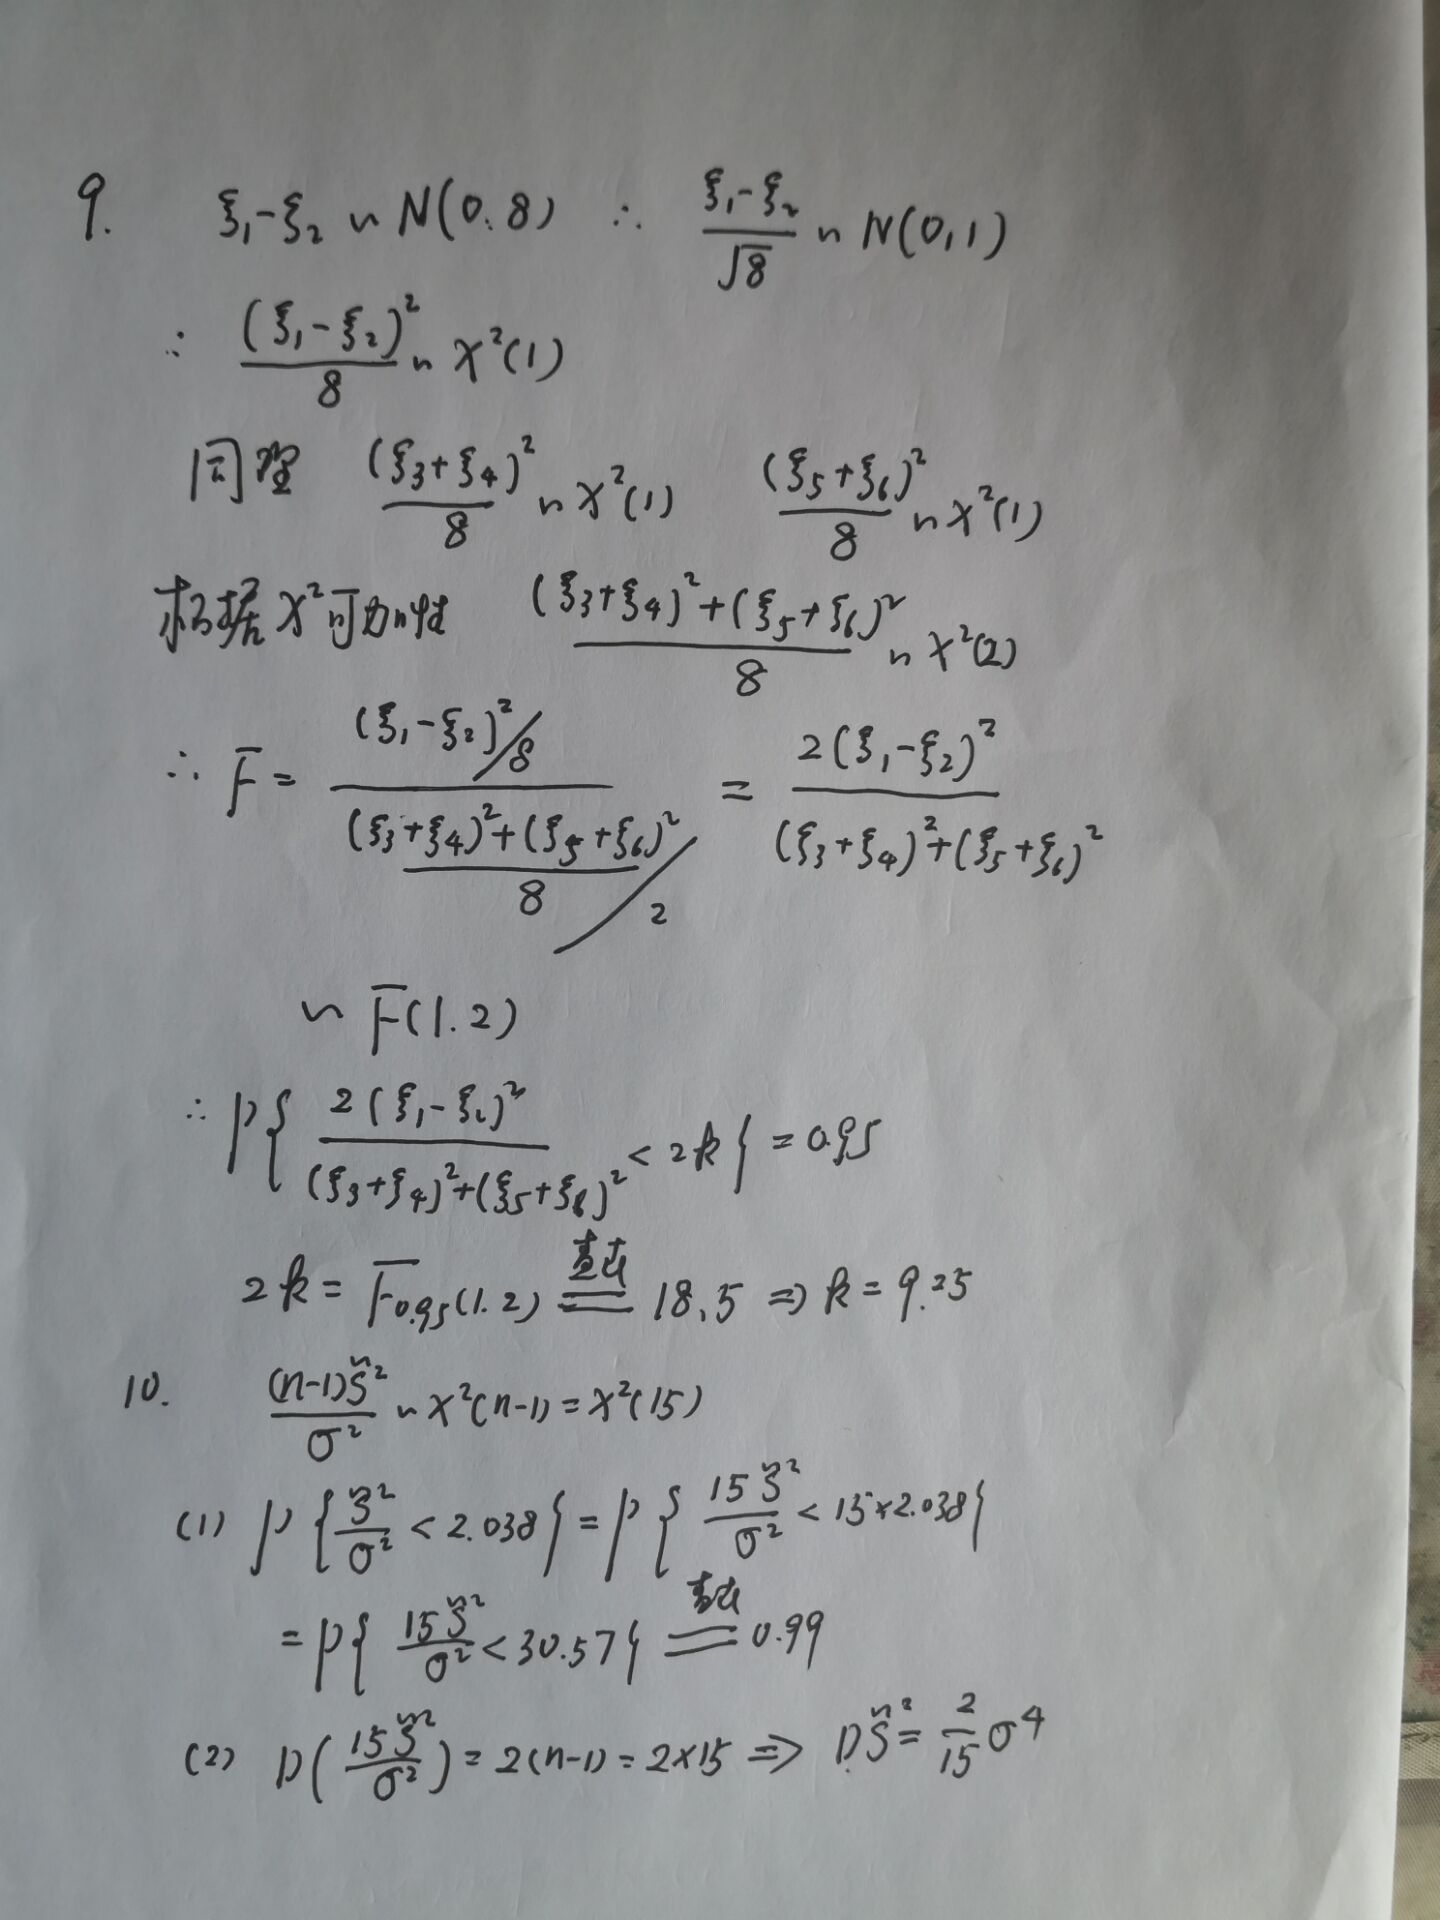 9. ξ₁-ξ₂ ~ N(0.8) ∴ (ξ₁-ξ₂)/√8 ~ N(0,1)
∴ (ξ₁-ξ₂)²/8 ~ χ²(1)
同理 (ξ₃+ξ₄)²/8 ~ χ²(1) (ξ₅+ξ₆)²/8 ~ χ²(1)
根据χ²可加性 ((ξ₃+ξ₄)²+(ξ₅+ξ₆)²)/8 ~ χ²(2)
∴ F = ((ξ₁-ξ₂)²/8)/(((ξ₃+ξ₄)²+(ξ₅+ξ₆)²)/8/2) = 2(ξ₁-ξ₂)²/((ξ₃+ξ₄)²+(ξ₅+ξ₆)²)
~ F(1.2)
∴ P{2(ξ₁-ξ₂)²/((ξ₃+ξ₄)²+(ξ₅+ξ₆)²) < 2k} = 0.95
2k = F₀.₉₅(1.2) 查表== 18.5 ⇒ k = 9.25
10. (n-1)S̃²/σ² ~ χ²(n-1) = χ²(15)
(1) P{S̃²/σ² < 2.038} = P{15S̃²/σ² < 15×2.038}
= P{15S̃²/σ² < 30.57} 查表== 0.99
(2) D(15S̃²/σ²) = 2(n-1) = 2×15 ⇒ DS̃² = 2/15 σ⁴